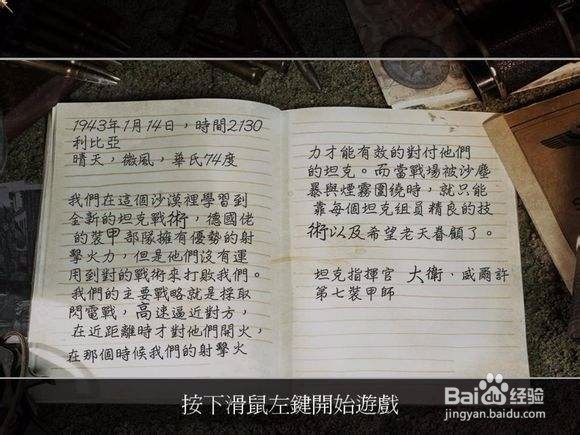 1943年1月14日，時間2130
利比亞
晴天，微風，華氏74度
我們在這個沙漠裡學習到
全新的坦克戰術，德國佬
的裝甲部隊擁有優勢的射
擊火力，但是他們沒有運
用到對的戰術來打敗我們。
我們的主要戰略就是採取
閃電戰，高速逼近對方，
在近距離時才對他們開火，
在那個時候我們的射擊火
力才能有效的對付他們
的坦克。而當戰場被沙塵
暴與煙霧圍繞時，就只能
靠每個坦克組員精良的技
術以及希望老天眷顧了。
坦克指揮官 大衛．威爾許
第七裝甲師
按下滑鼠左鍵開始遊戲
Baidu 经验
jingyan.baidu.com